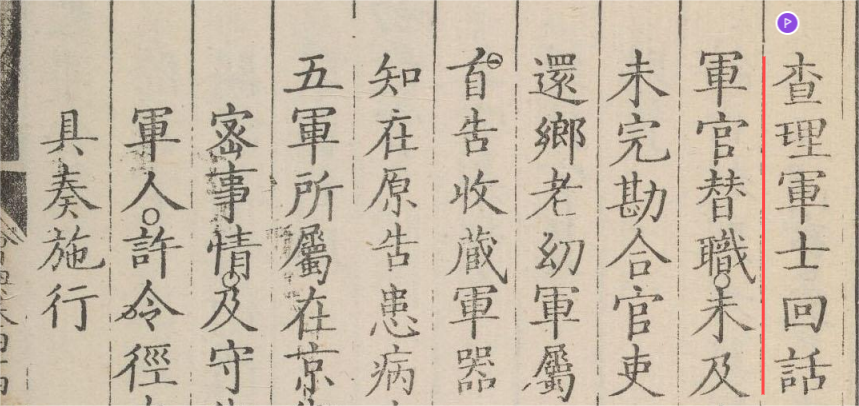 查理軍士回話
軍官替職未及
未完勘合官吏
還鄉老幼軍屬
首告收蔵軍器
知在原告患病
五軍所屬在京
宻事情及守
軍人許令徑
具奏施行